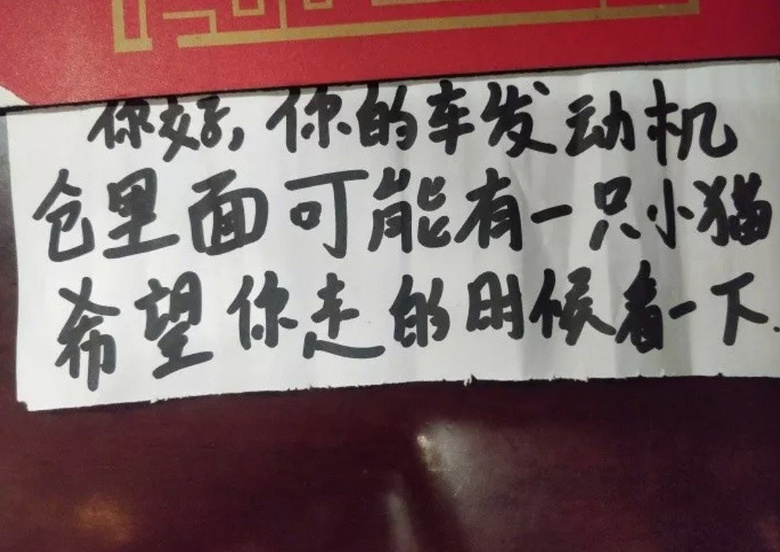 你好,你的车发动机
仓里面可能有一只小猫
希望你走的时候看一下.